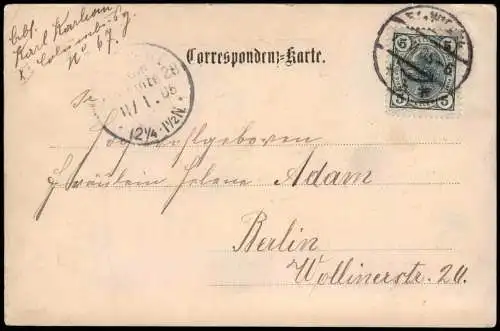 Abs.
Karl
No 67.
Correspondenz-Karte.
5 5
5 5
11/1.06
12¼-1½N.
Hochwohlgeboren
Fräulein Helene Adam
Berlin
Wollinerstr. 20.